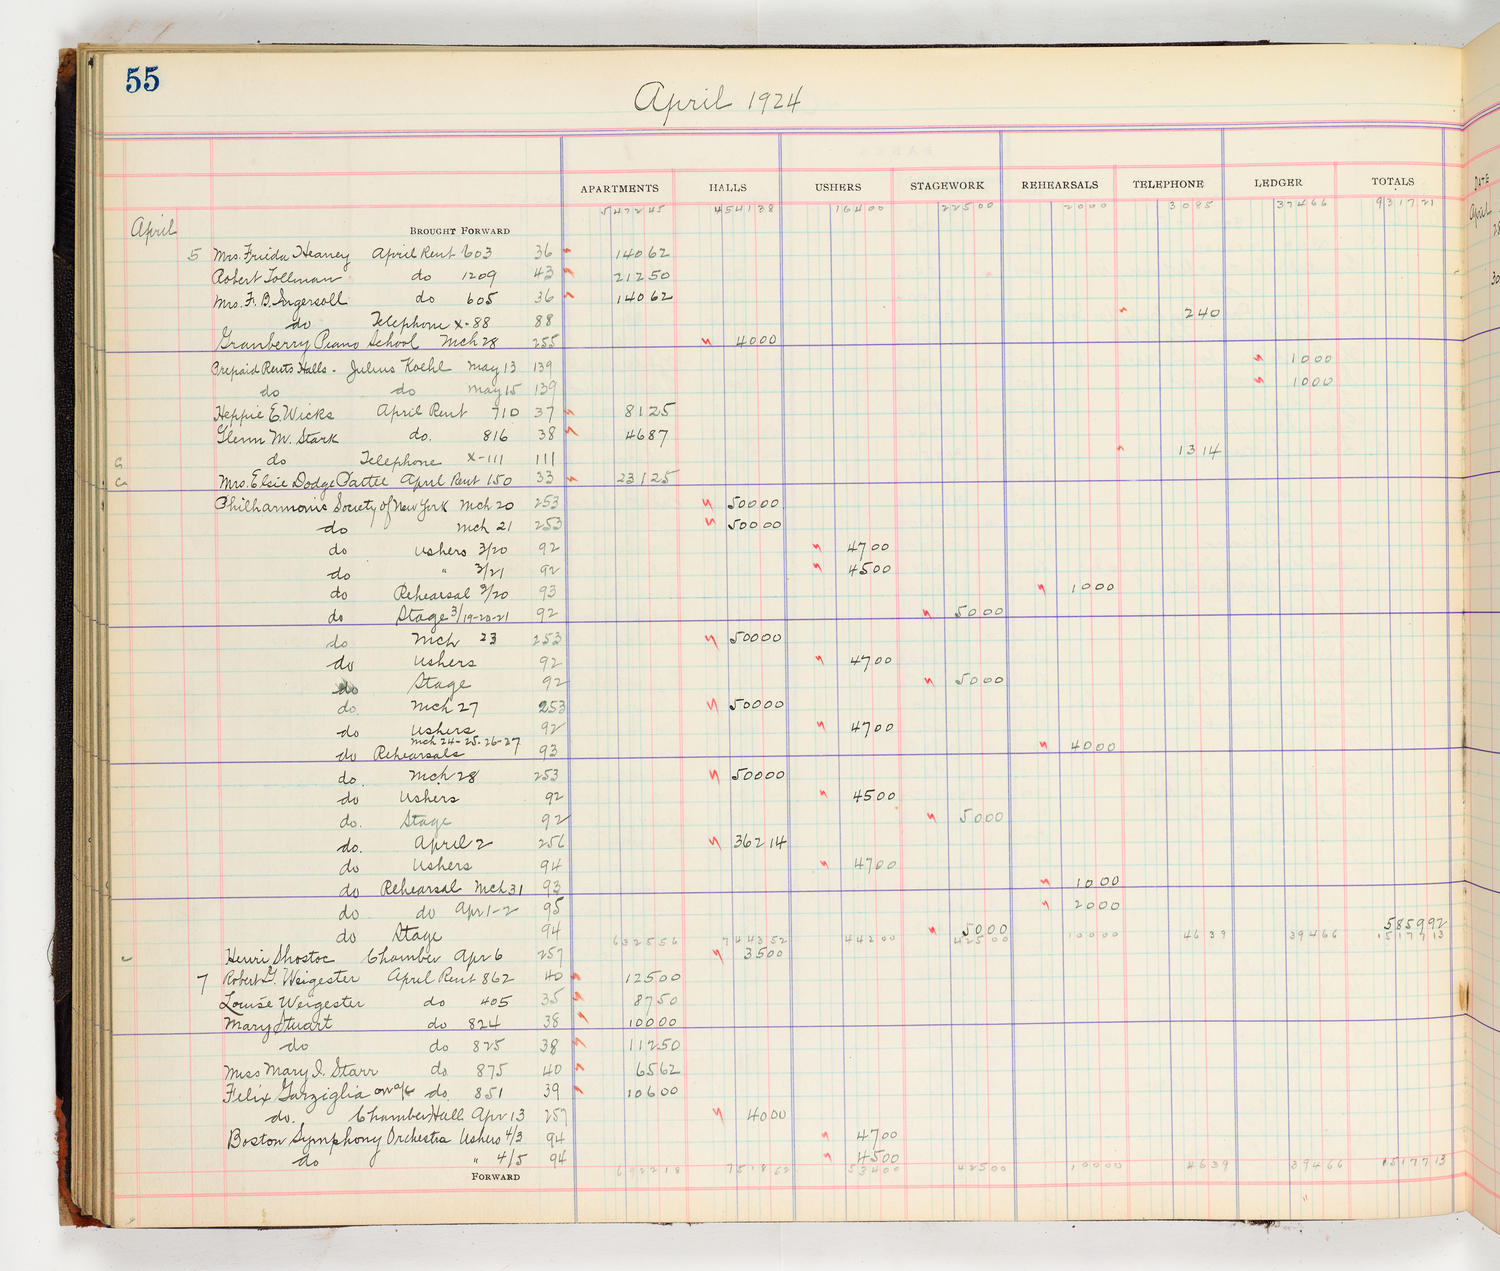 55
April 1924
APARTMENTS HALLS USHERS STAGEWORK REHEARSALS TELEPHONE LEDGER TOTALS
547245 454138 16400 22500 2000 3085 37466 931721
April
BROUGHT FORWARD
5 Mrs. Frieda Heaney April Rent 603 36 14062
Robert Tollman do 1209 43 21250
Mrs. F. B. Ingersoll do 605 36 14062
do Telephone X-88 88 240
Granberry Piano School Mch 28 255 4000
Prepaid Rents Halls - Julius Koehl May 13 139 1000
do do May 15 139 1000
Heppie E. Wicks April Rent 710 37 8125
Glenn M. Stark do. 816 38 4687
do Telephone X-111 111 1314
Mrs. Elsie Dodge Pattee April Rent 150 33 23125
Philharmonic Society of New York Mch 20 253 50000
do Mch 21 253 50000
do Ushers 3/20 92 4700
do " 3/21 92 4500
do Rehearsal 3/20 93 1000
do Stage 3/19-20-21 92 5000
do Mch 23 253 50000
do Ushers 92 4700
do Stage 92 5000
do. Mch 27 253 50000
do Ushers 92 4700
Mch 24-25-26-27
do Rehearsals 93 4000
do. Mch 28 253 50000
do Ushers 92 4500
do. Stage 92 5000
do. April 2 256 36214
do Ushers 94 4700
do Rehearsal Mch 31 93 1000
do do Apr 1-2 95 2000
do Stage 94 5000 585992
632556 744352 44200 42500 10000 4639 39466 1517713
Henri Chamber Apr 6 257 3500
7 Robert G. Weigester April Rent 862 40 12500
Louise Weigester do 405 35 8750
Mary Stuart do 824 38 10000
do do 825 38 11250
Miss Mary I. Starr do 875 40 6562
Felix Garziglia on a/c do. 851 39 10600
do. Chamber Hall Apr 13 257 4000
Boston Symphony Orchestra Ushers 4/3 94 4700
do " 4/5 94 4500
FORWARD 692218 751862 53400 42500 10000 4639 39466 1517713
DATE
April
28
30